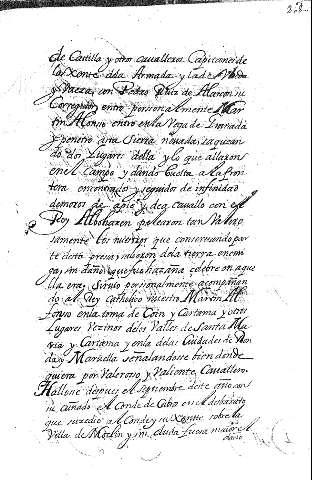 de Castilla y otros cavalleros Capitanes de
la Xente dela Armada y la de Ubeda
y Vaeza, con Pedro Ruiz de Alarcon su
Corregidor, entro personalmente Mar
tin Alonso entro en la Vega de Granada
y penetro asta Sierra nevada, saquean
do dos Lugares della y lo que allaron
en el Campo y dando buelta a la fron
tera encontrados y seguidos de infinidad
de moros de apie y de a cavallo con el
Rey Albohazen pelearon tan Valero
samente los nuestros que conservando par
te desta presa salieron dela tierra enemi
ga sin daño, que fue hazaña celebre en aque
lla era. Sirvio personalmente acompañan
do al Rey Catholico nuestro Martin Al
fonso en la toma de Coin y Cartama y otros
Lugares Vezinos de los Valles de Santa Ma
ria y Cartama y en la de las Ciudades de Ron
da, y Marvella señalandose bien donde
quiera por Valeroso y Valiente Cavallero.
Hallose despues el Septiembre deste año con
su cuñado el Conde de Cabra en el desbarato
que sucedio al Conde y su Xente sobre la
Villa de Moclin y sin duda fuera maior el
daño